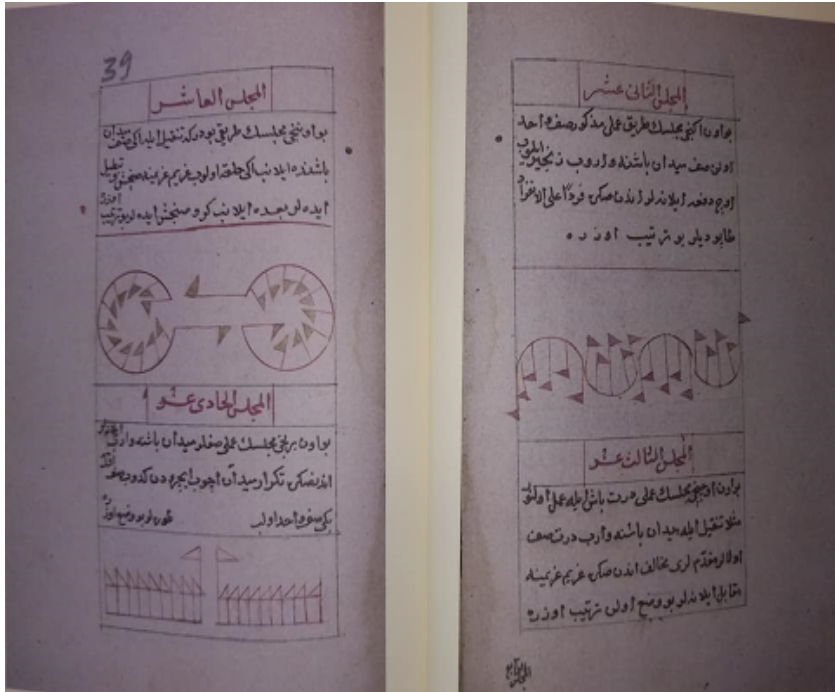 39
المجلس العاشر
بو اوننجى مجلسك طريقى بودركه تنقيل ايله اكى صف ميدان
باشنده ايلانب اكى حلقه اولوب غريم غريمنه صنجش و تنقيل
ايده لر بعده ايلانب كرو صنجش ايده لر بو ترتيب اوزره
المجلس الحادى عشر
بو اون برنجى مجلسك عملى صفلر ميدان باشنه وارب
اندنصكره تكرار ميدان اچوب ايچرودن كدوب
صف واحد اولب طورلر بو وضع اوزره
المجلس الثانى عشر
بو اون اكنجى مجلسك طريق عملى مذكور صف واحد
اولن صف ميدان باشنه واروب زنجير
اوچ دفعه ايلانه لر اندن صكره فردًا على الانفراد
طابو ديلر بو ترتيب اوزره
المجلس الثالث عشر
بو اون اوچنجى مجلسك عملى درت باش ايله عمل اولنور
مثلا تنقيل ايله ميدان باشنه وارب درت صف
اولالر مقدم لرى مخالف اندن صكره غريم غريمنه
مقابل ايلانه لر بو وضع اولى ترتيب اوزره